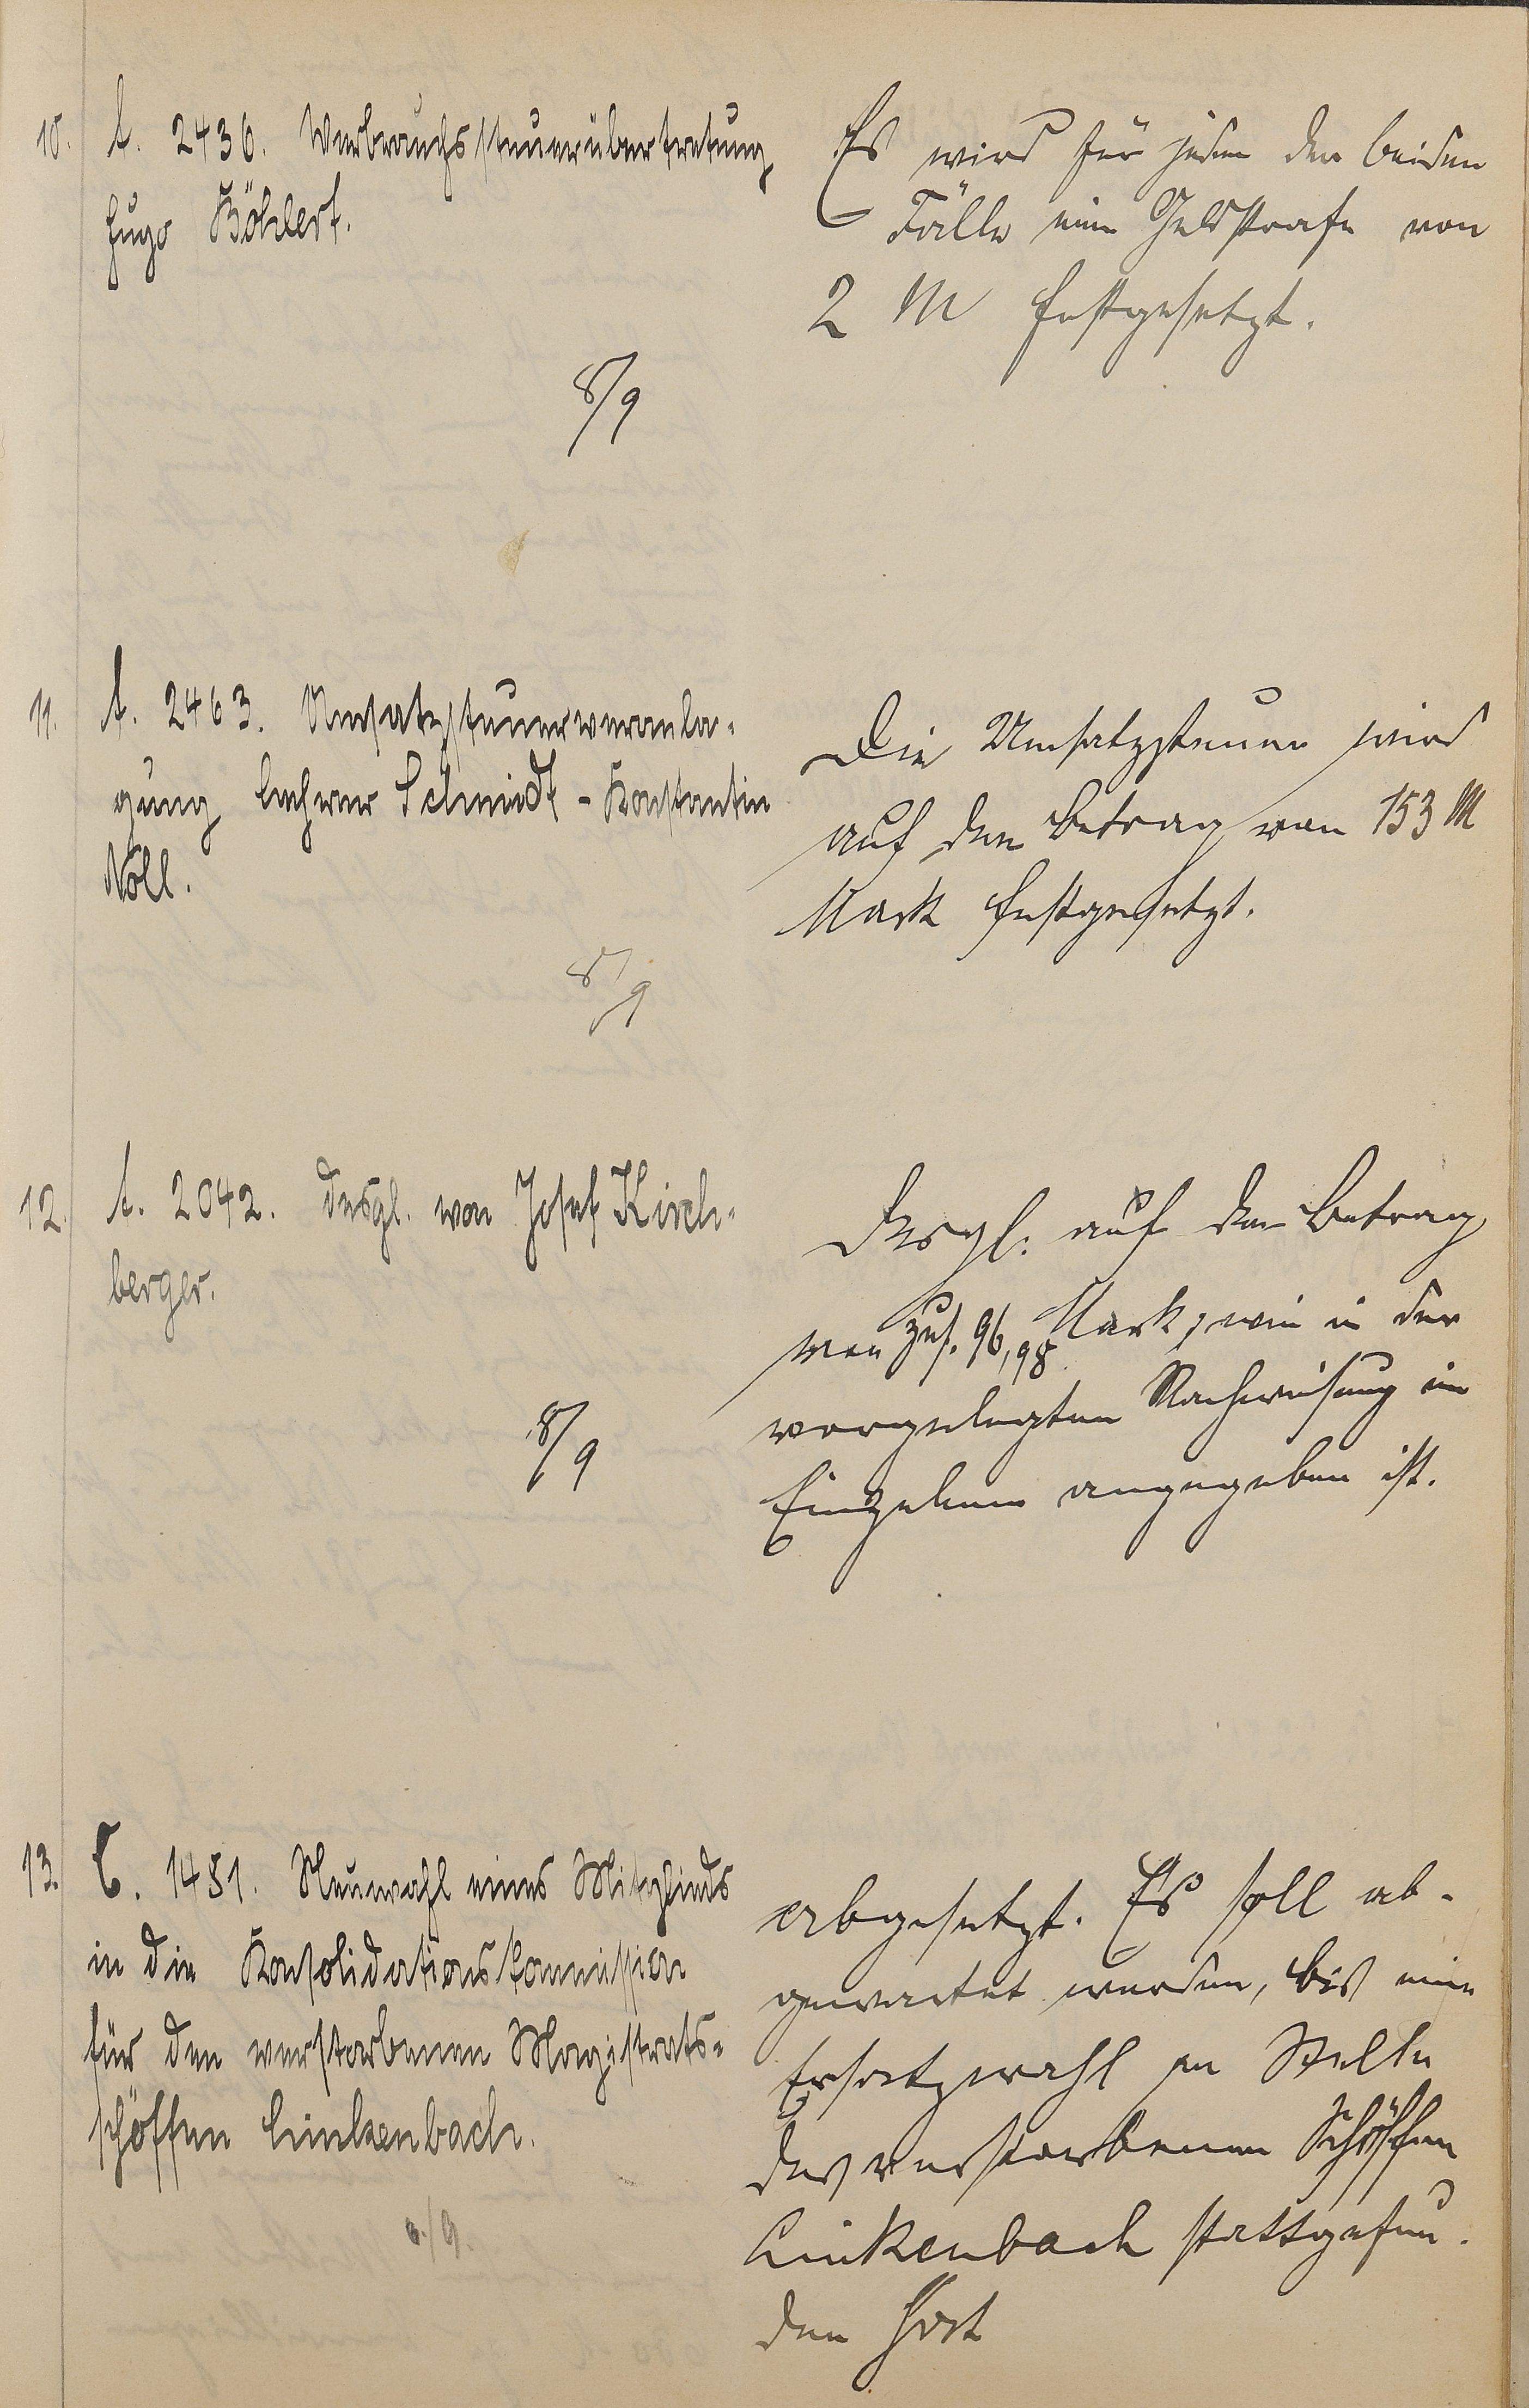 10. A. 2436. Verbrauchssteuerübertretung
Hugo Böhlert.
Es wird für jeden der beiden
Fälle eine Geldstrafe von
2 M festgesetzt.
8/9
11. A. 2463. Umsatzsteuerveranla-
gung Lehrer Schmidt - Konstantin
Noll.
Die Umsatzsteuer wird
auf den Betrag von 153 M
Mark festgesetzt.
8/9
12. A. 2042. desgl. von Josef Kirch-
berger.
Desgl. auf den Betrag
von zus. 96,98 Mark, wie in der
vorgelegten Nachweisung im
Einzelnen angegeben ist.
8/9
13. C. 1481. Neuwahl eines Mitglieds
in die Konsolidationskommission
für den verstorbenen Magistrats-
schöffen Linkenbach.
abgesetzt. Es soll ab-
gewartet werden, bis eine
Ersatzwahl an Stelle
des verstorbenen Schöffen
Linkenbach stattgefun-
den hat